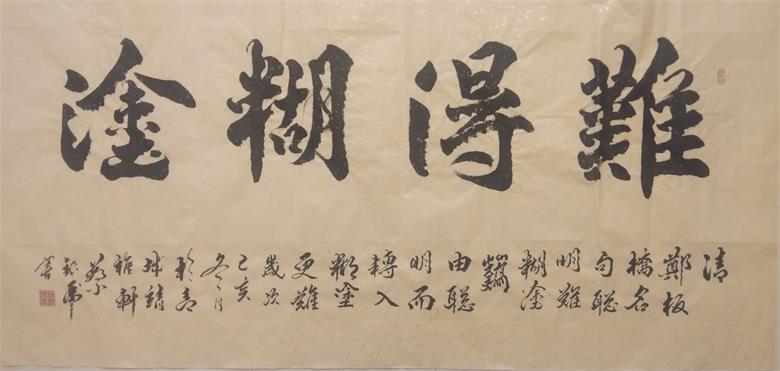 難得糊塗
清
鄭板
橋名
句聰
明難
糊塗
由聰
明而
轉入
糊塗
更難
歲次
己亥
冬月
於青
城靖
雅軒
書